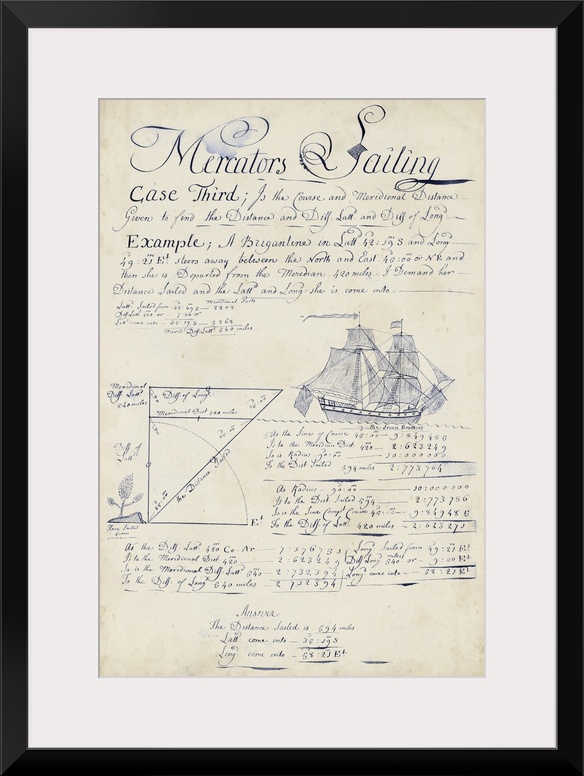 Mercators Sailing
Case Third; Is the Course and Meridional Distance
Given to find the Distance and Diff Latt and Diff of Long
Example; A Brigantine in Latt 42:19 S and Long
49:21 Et steers away between the North and East 45:00 or NE and
then she is Departed from the Meredian 420 miles I Demand her
Distance Sailed and the Latt and Long she is come into
Meridional Parts
Latt Sailed from 42:19 S
Latt come into 35:19 S 2268
Merid Diff Latt 540 miles
Meridional
Diff Latt
540 miles
Diff of Long
Meridional Dist 420 miles
Diff of
Latt
the Distance Sailed
45:00
45:00
Et
The Seven Brothers
As the Sine of Course 45:00 9:849485
Is to the Meridian Dist 420 2:623249
So is Radius 90:00 10:000000
To the Dist Sailed 594 miles 2:773764
As Radius 90:00 10:000000
Is to the Dist Sailed 594 2:773786
So is the Sine Comp Course 45:00 9:849485
To the Diff of Latt 420 miles 2:623271
As the Diff Latt 420 Co. Ar 7:376751
Is to the Meridional Dist 420 2:623249
So is the Meridional Diff Latt 540 2:732394
To the Diff of Long 540 miles 2:732394
Long Sailed from 49:21 Et
Diff Long 540 miles or 9:00 Et
Long come into 58:21 Et
Answer
The Distance Sailed is 594 miles
Latt come into 35:19 S
Long come into 58:21 Et